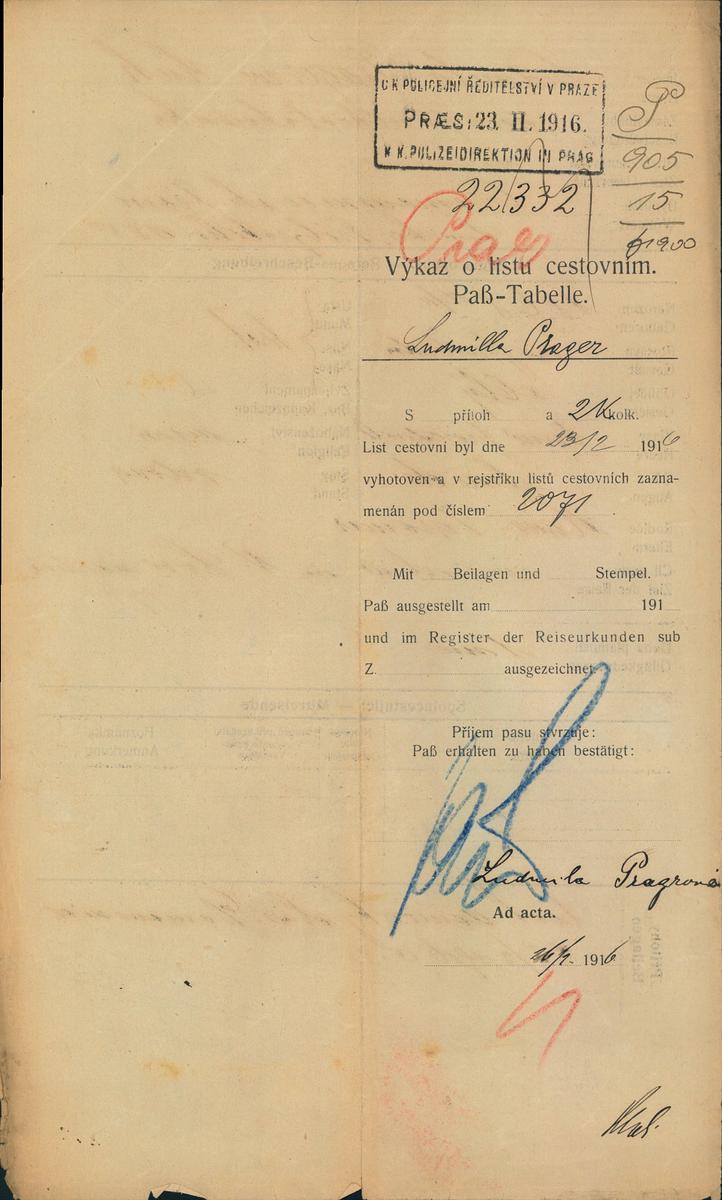 C K POLICEJNÍ ŘEDITELSTVÍ V PRAZE
PRÆS: 23. II. 1916.
K K. POLIZEIDIREKTION IN PRAG
P
905
15
22/332
Prag
Výkaz o listu cestovním.
Paß-Tabelle.
Ludmilla Prager
S příloh a 2K kolk.
List cestovní byl dne 23/2 1916
vyhotoven a v rejstříku listů cestovních zazna-
menán pod číslem 2071
Mit Beilagen und Stempel.
Paß ausgestellt am 191
und im Register der Reiseurkunden sub
Z. ausgezeichnet.
Příjem pasu stvrzuje:
Paß erhalten zu haben bestätigt:
Ludmila Pragrová
Ad acta.
26/2 1916